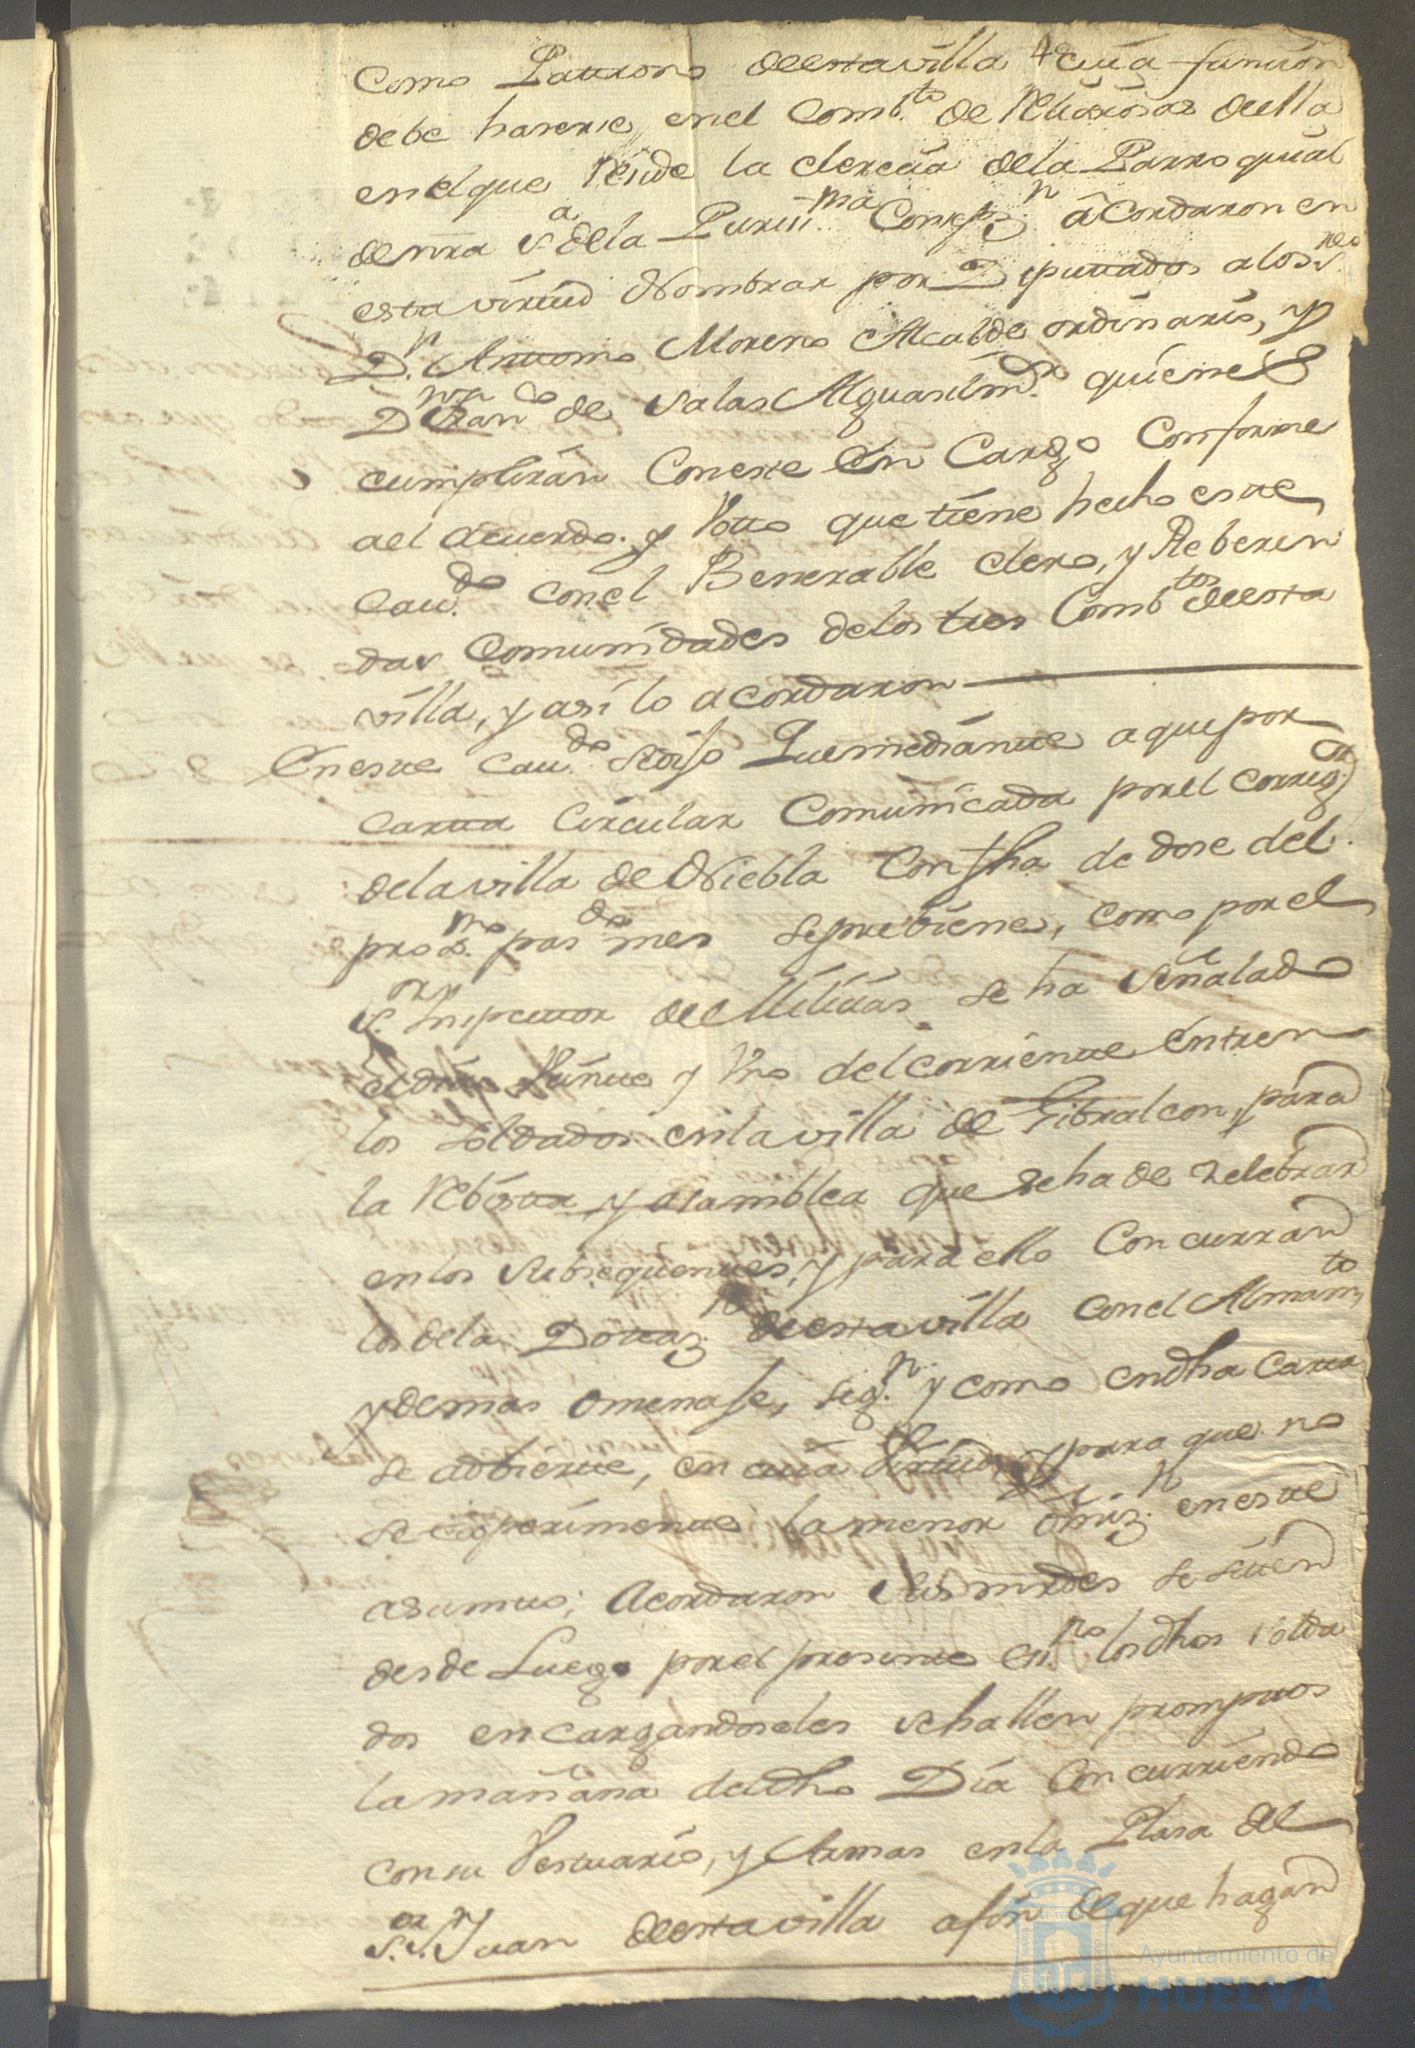 Como Patrono deestavilla cuia funcion
debe haserse, enel Comb.to de Relixiosas deella
enelque Reside la clerecia dela Parroquial
denrra S.a dela Purisi.ma Consepz.n acordaron en
esta virtud Nombrar por Diputados alos S.res
D.n Antonio Moreno Alcalde ordinario, y
D.n Fran.do de Salas Alguasilm.or quienes
cumpliran Coneste En Cargo Conforme
ael Acuerdo. y Voto que tiene hecho este
Cau.do conel Benerable clero, y Reberen
das Comunidades delos tres Comb.tos deesta
villa, y así lo acordaron
Eneste Cau.do sedijo Quemediante aquepor
Carta Circular Comunicada porel Correg.or
delavilla de Niebla Con fha de dose del
prox.mo pas.do mes seprebiene, como porel
S.or Inspector de Milicias se ha señalado
eldia Veinte y Vno delcorriente Entren
los soldados enlavilla de Gibralcon, para
la Rebista y asamblea que seha de zelebrar
enlos subsequentes, y para ello Concurran
los dela Dotaz.n deestavilla conel Armam.to
ydemas omenase, seg.n y como endha Carta
se adbierte, en cuia Virtud y para que no
seexperimente lamenor omiz.n eneste
asumto; Acordaron sus mrdes se siten
desde Luego porel presente Es.no losdhos solda
dos encargandoseles sehallen promptos
lamañana deldho Dia Concurriendo
consu Vestuario, y Armas enla Plasa del
S.or S.n Juan deestavilla afin deque hagan
Ayuntamiento de
HUELVA